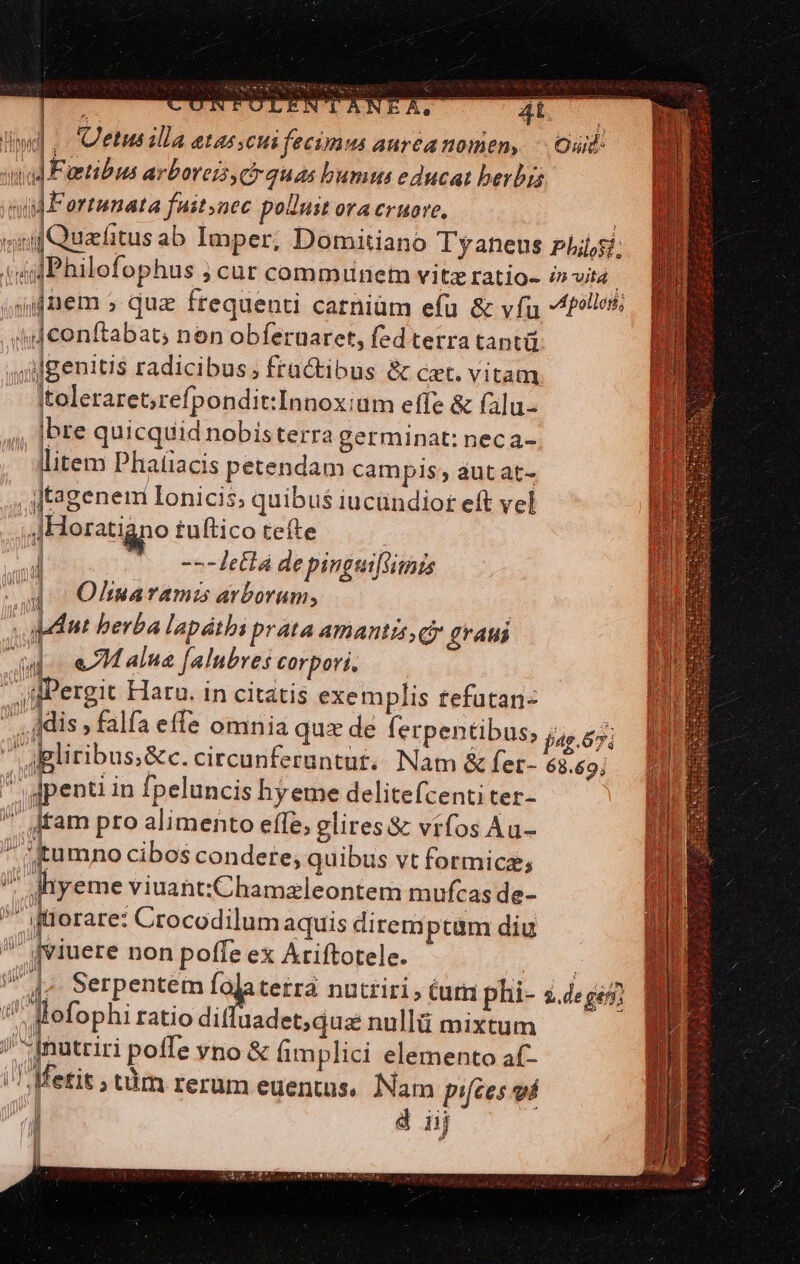 CONFOLENTANEA. 41
Vetus illa ætas, cui fecimus aurea nomen, Ouid.
Fœtibus arboreis, & quas humus educat herbis
Fortunata fuit, nec polluit ora cruore.
Quæſitus ab Imper. Domitiano Tyaneus Philoſ.
Philoſophus, cur communem vitæ ratio- in vita
nem, quæ frequenti carnium eſu & vſu Apollon.
conſtabat, non obſeruaret, ſed terra tantū
genitis radicibus, fructibus & cæt. vitam
toleraret, reſpondit: Innoxium eſſe & ſalu-
bre quicquid nobis terra germinat: nec a-
litem Phaſiacis petendam campis, aut at-
tagenem Ionicis, quibus iucundior eſt vel
Horatiano ruſtico teſte
---lecta de pinguiſſimis
Oliua ramis arborum,
Aut herba lapathi prata amantis, & graui
Maluæ ſalubres corpori.
Pergit Haru. in citatis exemplis refutan-
dis, falſa eſſe omnia quæ de ſerpentibus, pag. 67.
gliribus, &c. circunferuntur. Nam & ſer- 68.69.
penti in ſpeluncis hyeme deliteſcenti ter-
ram pro alimento eſſe, glires & vrſos Au-
tumno cibos condere, quibus vt formicæ,
hyeme viuant: Chamæleontem muſcas de-
uorare: Crocodilum aquis diremptum diu
viuere non poſſe ex Ariſtotele.
Serpentem ſola terra nutriri, tum phi- 2. de gen.
loſophi ratio diſſuadet, quæ nullū mixtum
nutriri poſſe vno & ſimplici elemento aſ-
ſerit, tùm rerum euentus. Nam piſces vt
d iij